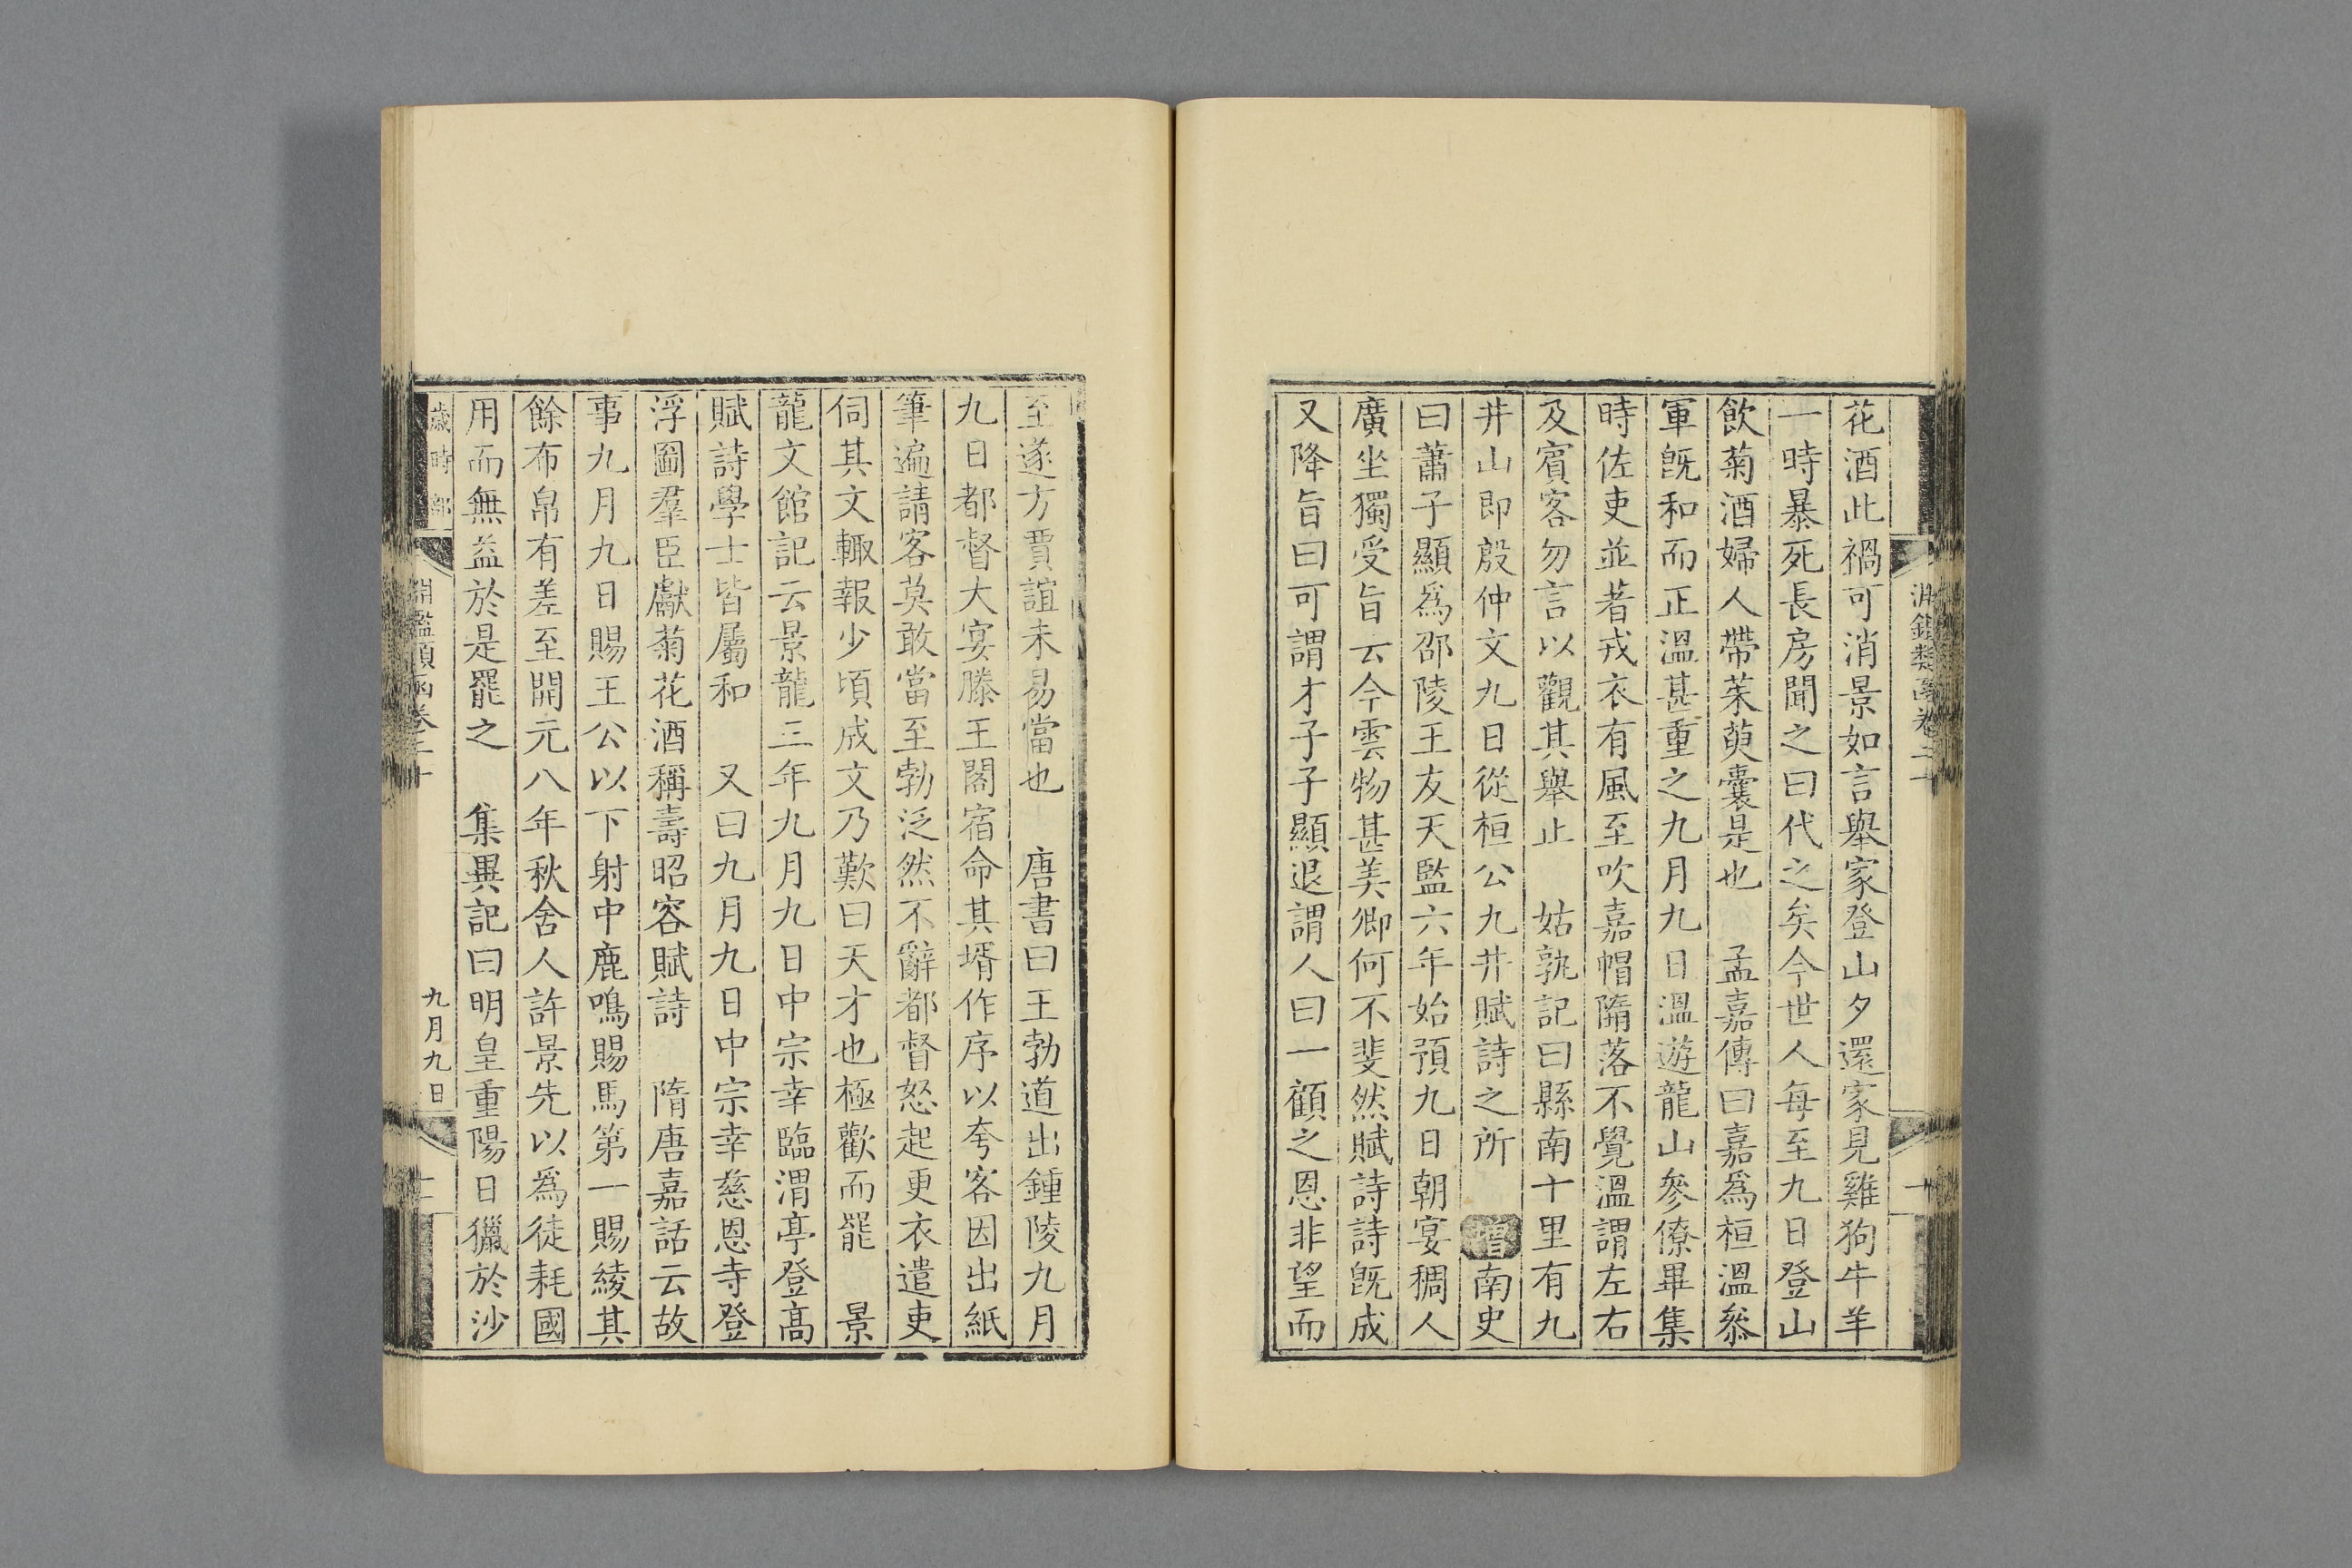 花酒此禍可消景如言舉家登山夕還家見雞狗牛羊
一時暴死長房聞之曰代之矣今世人每至九日登山
飲菊酒婦人帶茱萸囊是也　孟嘉傳曰嘉爲桓溫叅
軍旣和而正溫甚重之九月九日溫遊龍山參僚畢集
時佐吏並著戎衣有風至吹嘉帽隋落不覺溫謂左右
及賓客勿言以觀其舉止　姑孰記曰縣南十里有九
井山即殷仲文九日從桓公九井賦詩之所　增南史
曰蕭子顯爲邵陵王友天監六年始預九日朝宴稠人
廣坐獨受旨云今雲物甚美卿何不斐然賦詩詩旣成
又降旨曰可謂才子子顯退謂人曰一顧之恩非望而
至遂方賈誼未易當也　唐書曰王勃道出鍾陵九月
九日都督大宴滕王閣宿命其壻作序以夸客因出紙
筆遍請客莫敢當至勃泛然不辭都督怒起更衣遣吏
伺其文輙報少頃成文乃歎曰天才也極歡而罷　景
龍文館記云景龍三年九月九日中宗幸臨渭亭登高
賦詩學士皆屬和　又曰九月九日中宗幸慈恩寺登
浮圖羣臣獻菊花酒稱壽昭容賦詩　隋唐嘉話云故
事九月九日賜王公以下射中鹿鳴賜馬第一賜綾其
餘布帛有差至開元八年秋舍人許景先以爲徒耗國
用而無益於是罷之　集異記曰明皇重陽日獵於沙
歲時部
淵鑑類函卷二十
九月九日